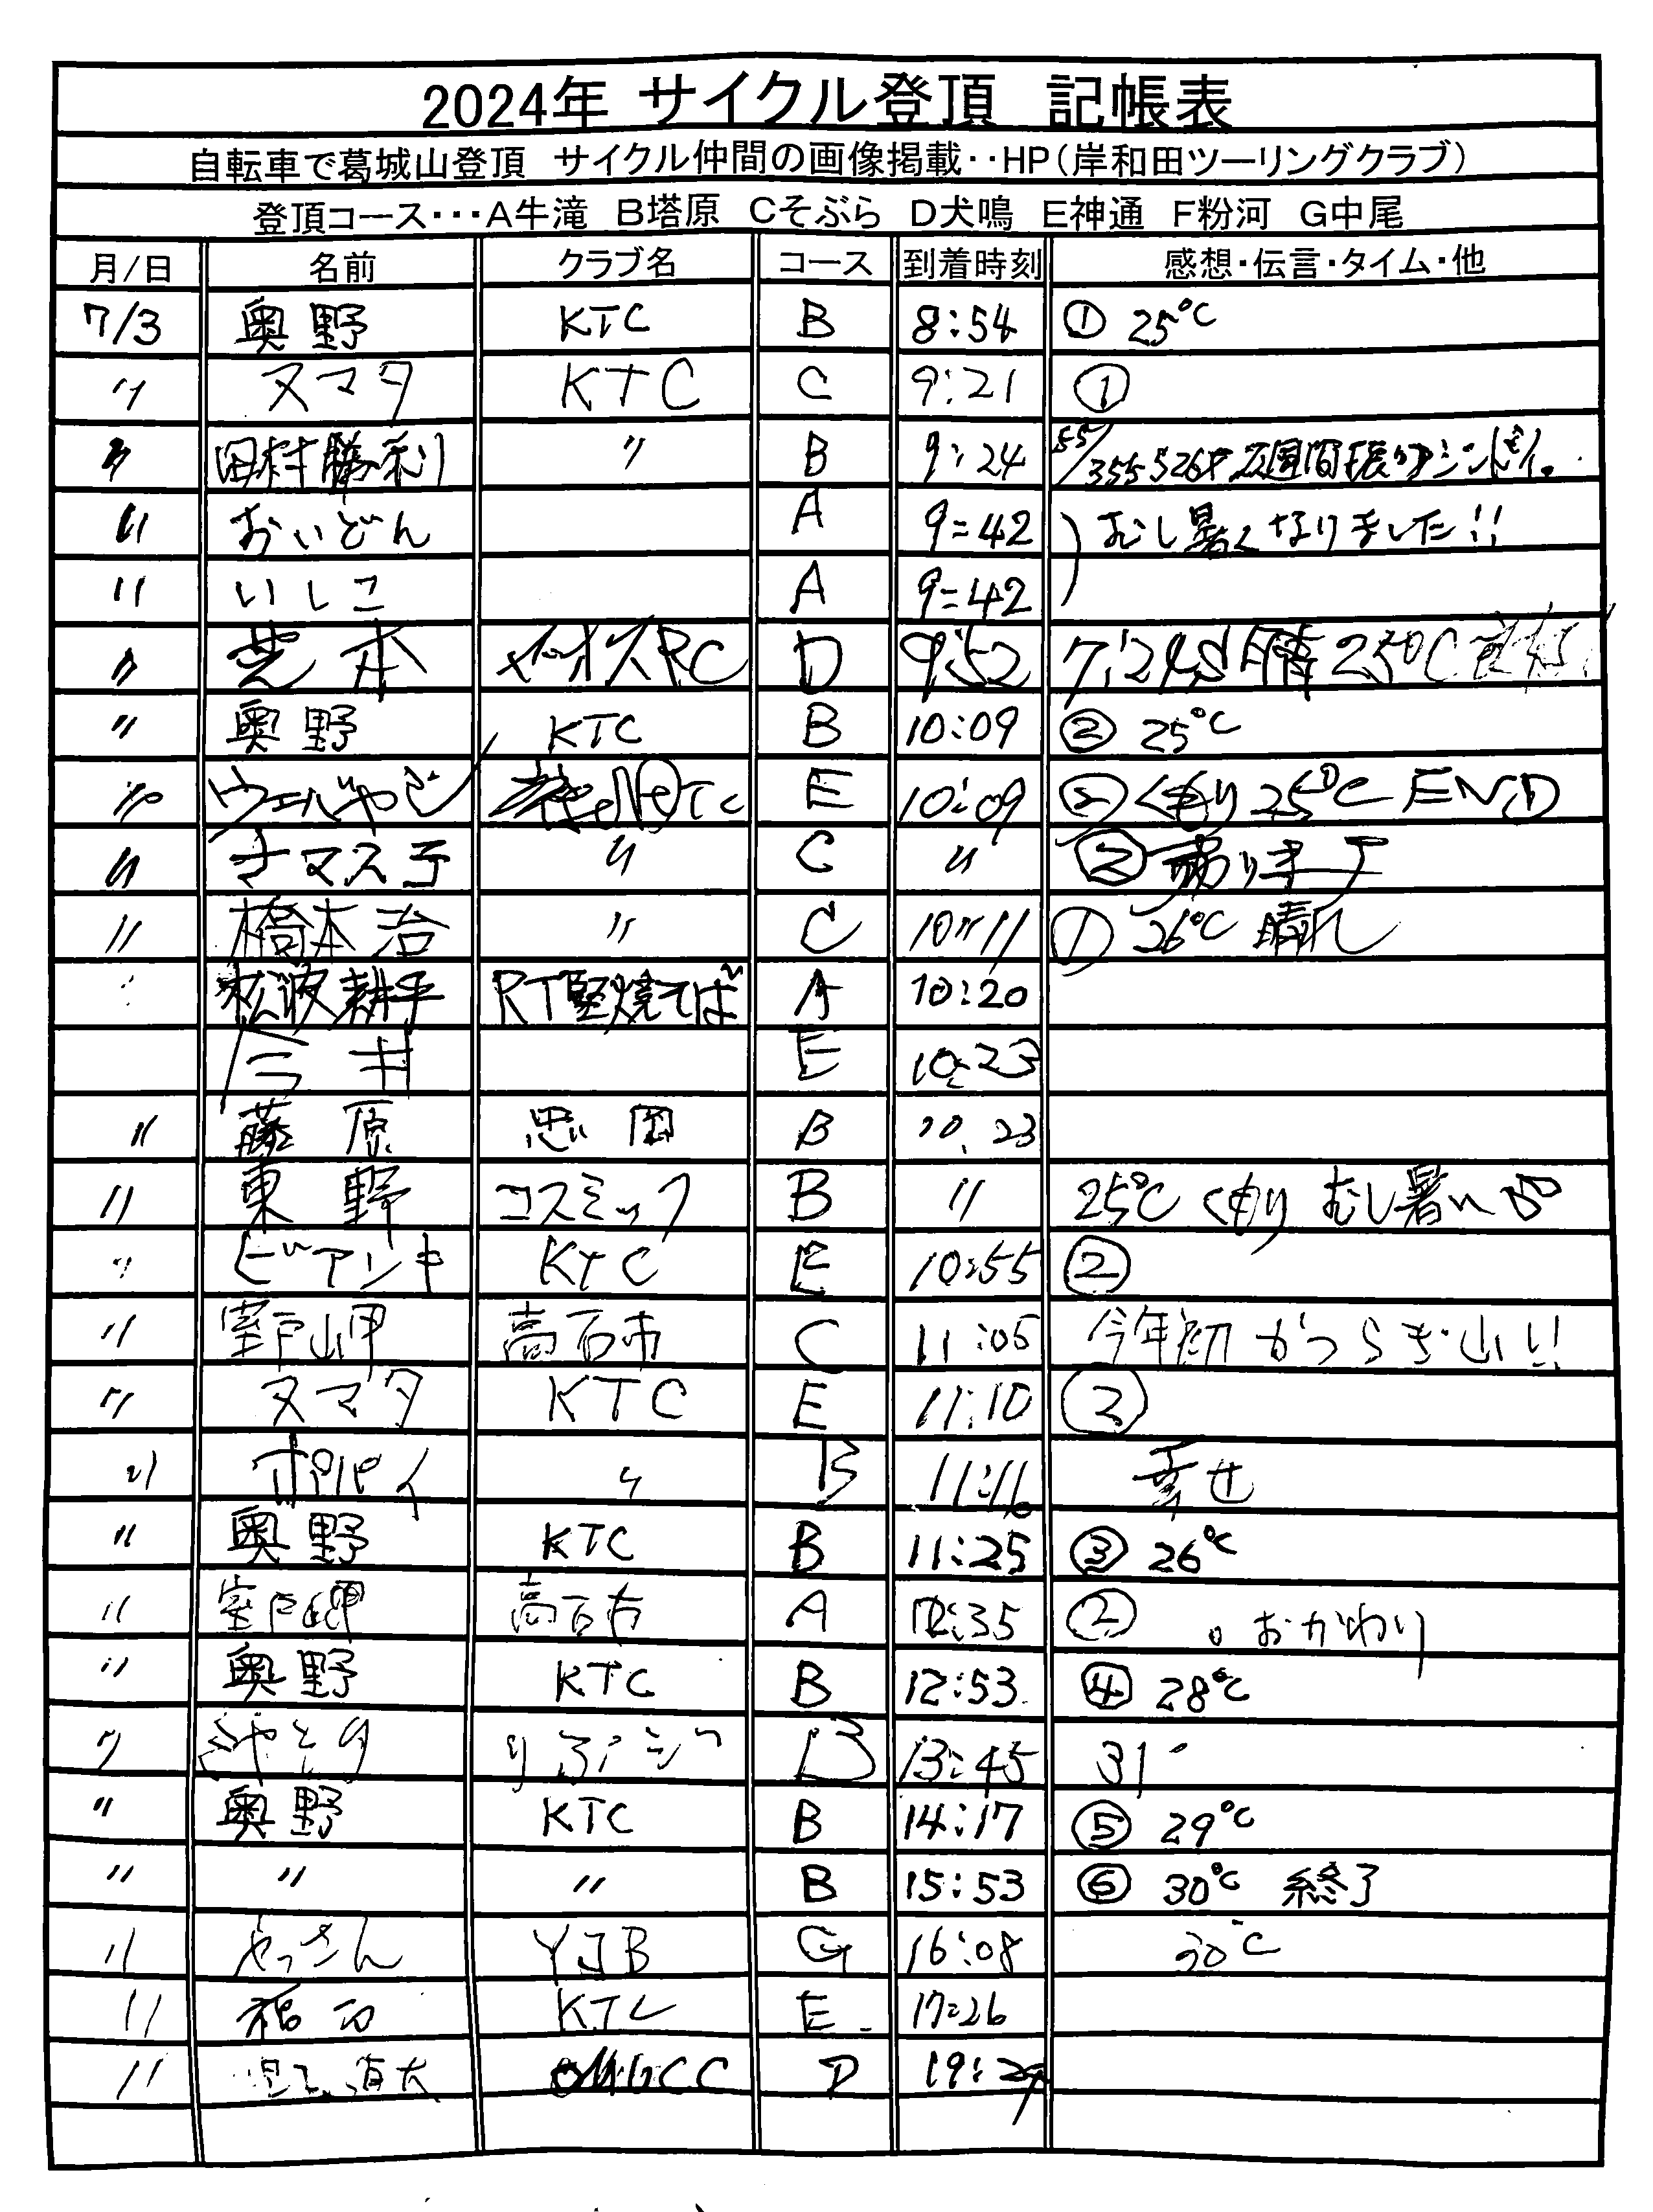 2024年 サイクル登頂 記帳表
自転車で葛城山登頂 サイクル仲間の画像掲載‥HP(岸和田ツーリングクラブ)
登頂コース･･･A牛滝 B塔原 Cそぶら D犬鳴 E神通 F粉河 G中尾
月/日 名前 クラブ名 コース 到着時刻 感想・伝言・タイム・他
7/3 奥野 KTC B 8:54 ① 25℃
〃 ヌマタ KTC C 9:21 ①
〃 田村勝利 〃 B 9:24 55/355 526
〃 おいどん A 9=42 むし暑くなりました!!
〃 いしこ A 9=42
〃 芝本 RC D 9:52 晴 25℃
〃 奥野 KTC B 10:09 ② 25℃
〃 E 10:09 ② くもり 25℃ END
〃 ナマステ 〃 C 〃 ②
〃 橋本治 〃 C 10〃11 ① 26℃ 晴れ
松波耕平 RT堅焼そば A 10:20
今井 E 10:23
〃 藤原 思岡 B 10:23
〃 東野 コスミック B 〃 25℃ くもり むし暑い
〃 ビアンキ KTC E 10:55 ②
〃 室戸岬 高石市 C 11:05 今年初かつらぎ山!!
〃 ヌマタ KTC E 11:10 ②
〃 ポパイ 〃 B 11:16 幸せ
〃 奥野 KTC B 11:25 ③ 26℃
〃 室戸岬 高石市 A 12:35 ② おかわり
〃 奥野 KTC B 12:53 ④ 28℃
〃 B 13:45 31°
〃 奥野 KTC B 14:17 ⑤ 29℃
〃 〃 〃 B 15:53 ⑥ 30℃ 終了
〃 やっさん YJB G 16:08 30℃
〃 KTC E 17:26
〃 D